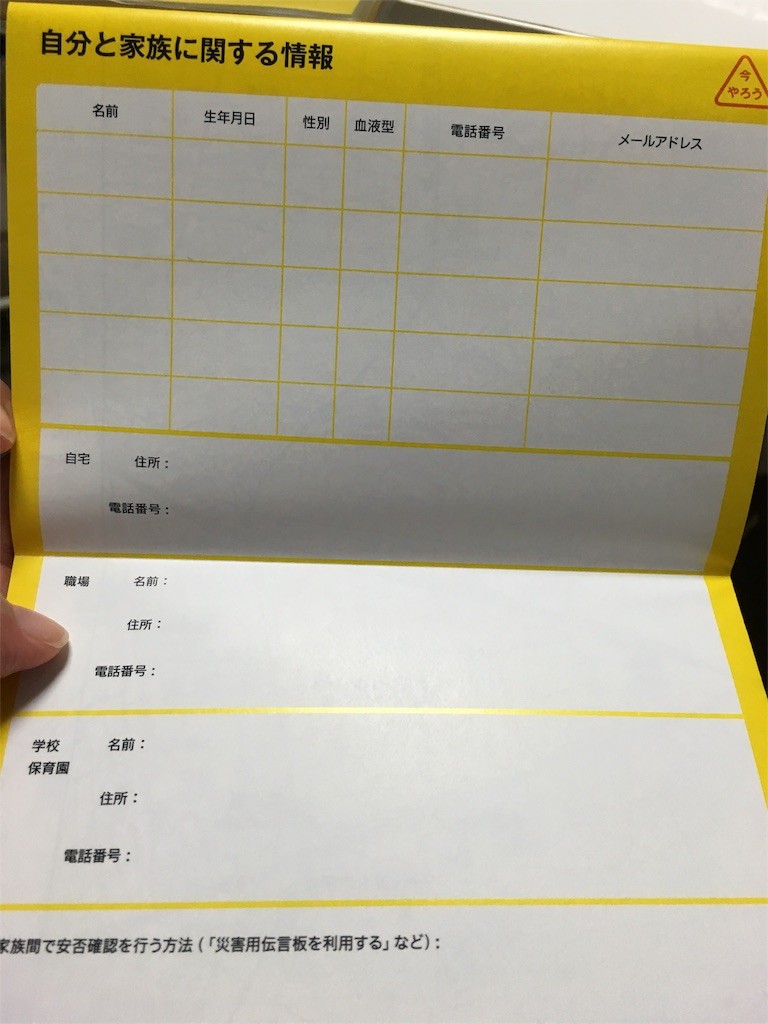 自分と家族に関する情報
今
やろう
名前 生年月日 性別 血液型 電話番号 メールアドレス
自宅 住所：
電話番号：
職場 名前：
住所：
電話番号：
学校 名前：
保育園
住所：
電話番号：
家族間で安否確認を行う方法（「災害用伝言板を利用する」など）：